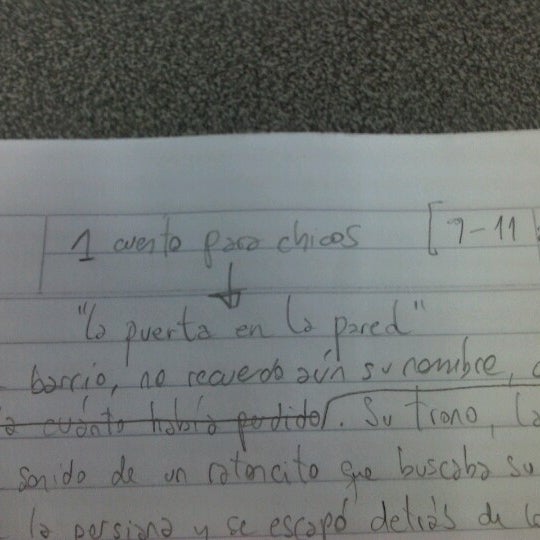 1 cuento para chicos [7-11
"la puerta en la pared"
barrio, no recuerdo aún su nombre,
cuánto había perdido. Su trono, la
sonido de un ratoncito que buscaba su
la persiana y se escapó detrás de